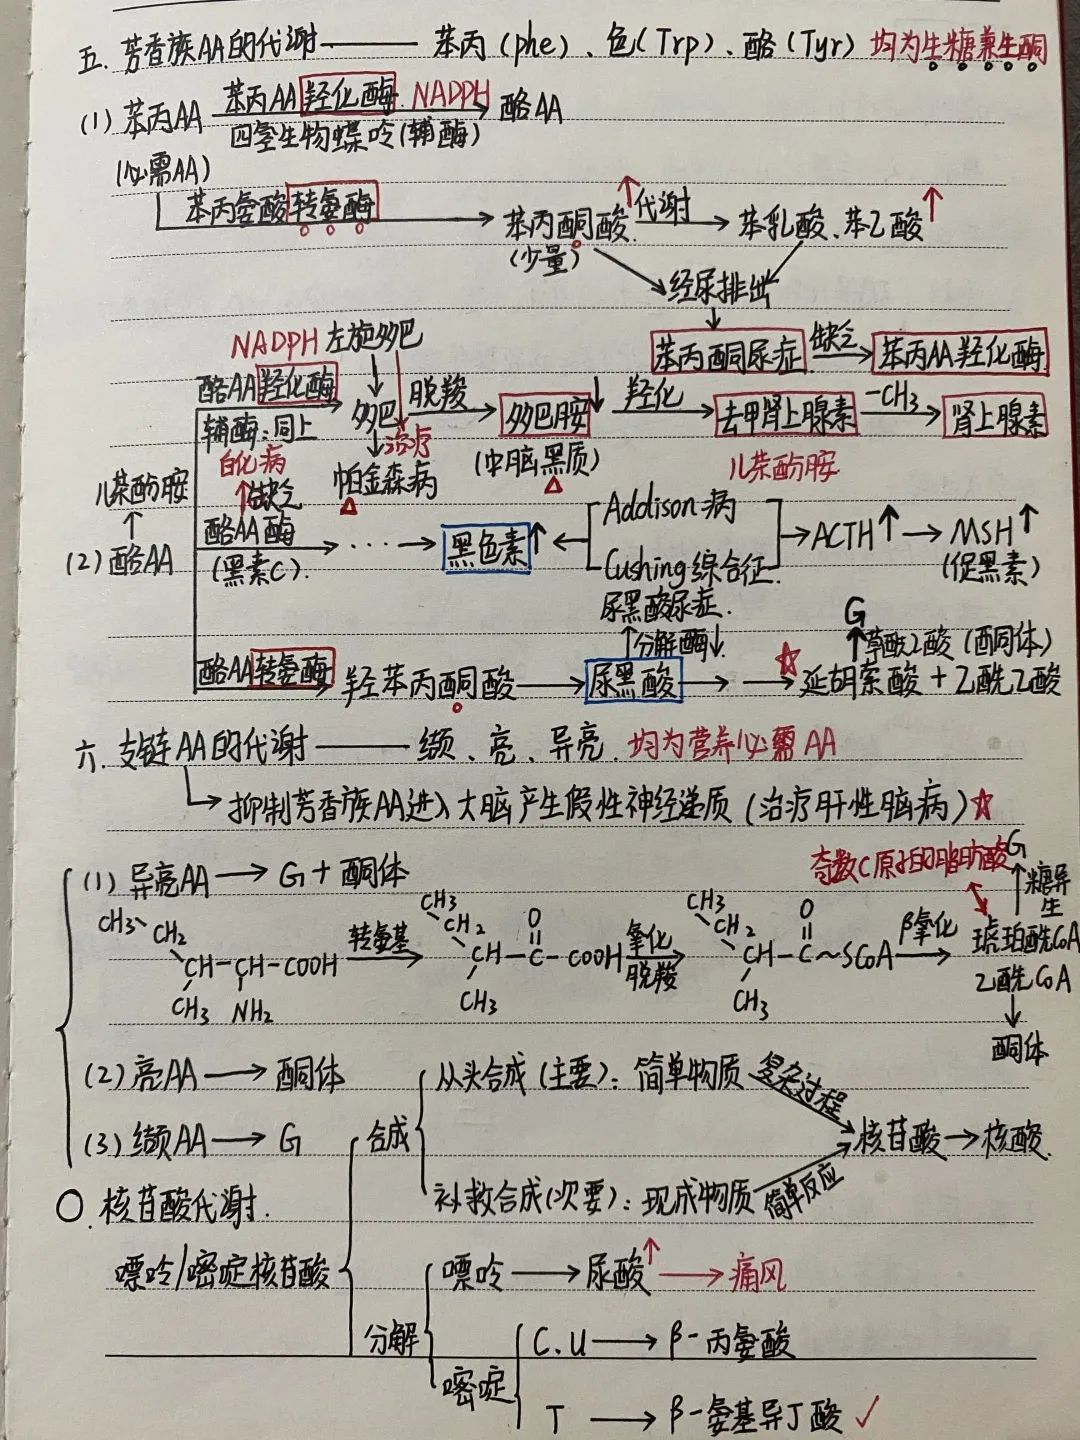 五. 芳香族AA的代谢——苯丙(phe)、色(Trp)、酪(Tyr) 均为生糖兼生酮
(1) 苯丙AA 苯丙AA羟化酶 NADPH → 酪AA
四氢生物蝶呤(辅酶)
(必需AA)
苯丙氨酸转氨酶 → 苯丙酮酸↑ 代谢 → 苯乳酸、苯乙酸↑
(少量)
经尿排出
↓
苯丙酮尿症 缺乏 → 苯丙AA羟化酶
NADPH 左旋多巴
酪AA羟化酶 → 多巴 脱羧 → 多巴胺↓ 羟化 → 去甲肾上腺素 -CH3 → 肾上腺素
辅酶:同上 ↓治疗 (中脑黑质) 儿茶酚胺
白化病 帕金森病
↑缺乏
儿茶酚胺
↑
(2) 酪AA
酪AA酶 → ··· → 黑色素↑ ← Addison病 → ACTH↑ → MSH↑
(黑素C). Cushing综合征. (促黑素)
尿黑酸尿症. G
↑分解酶↓. ↑草酰乙酸 (酮体)
酪AA转氨酶 → 羟苯丙酮酸 → 尿黑酸 → → ☆ 延胡索酸 + 乙酰乙酸
六. 支链AA的代谢——缬、亮、异亮. 均为营养必需AA
↳ 抑制芳香族AA进入大脑产生假性神经递质 (治疗肝性脑病)☆
(1) 异亮AA → G + 酮体
奇数C原子的脂肪酸 G
↑糖异生
CH3 CH2 CH-CH-COOH CH3 NH2 转氨基 → CH3 CH2 CH-C-COOH O CH3 氧化脱羧 → CH3 CH2 CH-C~SCoA O CH3 β氧化 → 琥珀酰CoA
乙酰CoA
↓
酮体
(2) 亮AA → 酮体
(3) 缬AA → G
〇. 核苷酸代谢.
嘌呤/嘧啶核苷酸
合成
从头合成(主要): 简单物质 复杂过程
核苷酸 → 核酸.
补救合成(次要): 现成物质 简单反应
分解
嘌呤 → 尿酸↑ → 痛风
嘧啶
C.U → β-丙氨酸
T → β-氨基异丁酸 ✓